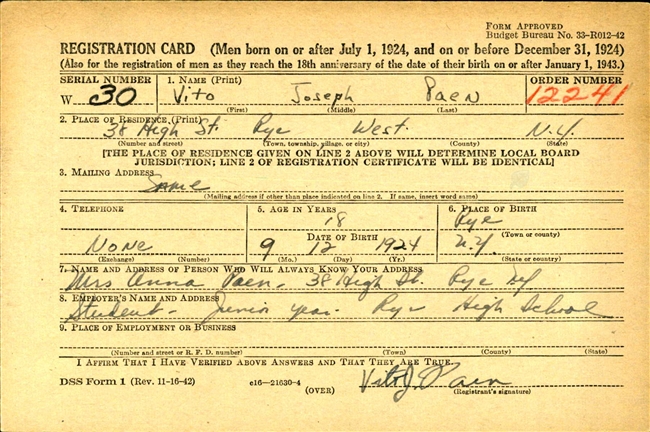 FORM APPROVED
BUDGET BUREAU NO. 33-R012-42
REGISTRATION CARD (Men born on or after July 1, 1924, and on or before December 31, 1924)
(Also for the registration of men as they reach the 18th anniversary of the date of their birth on or after January 1, 1943.)
SERIAL NUMBER 1. NAME (Print) ORDER NUMBER
W 30 Vito Joseph Paen 12241
(First) (Middle) (Last)
2. PLACE OF RESIDENCE (Print)
38 High St. Rye West. N.Y.
(Number and street) (Town, township, village, or city) (County) (State)
[THE PLACE OF RESIDENCE GIVEN ON LINE 2 ABOVE WILL DETERMINE LOCAL BOARD
JURISDICTION; LINE 2 OF REGISTRATION CERTIFICATE WILL BE IDENTICAL]
3. MAILING ADDRESS
Same
(Mailing address if other than place indicated on line 2. If same, insert word same)
4. TELEPHONE 5. AGE IN YEARS 6. PLACE OF BIRTH
18 Rye
DATE OF BIRTH (Town or county)
None 9 12 1924 N.Y.
(Exchange) (Number) (Mo.) (Day) (Yr.) (State or country)
7. NAME AND ADDRESS OF PERSON WHO WILL ALWAYS KNOW YOUR ADDRESS
Mrs Anna Paen - 38 High St. Rye NY
8. EMPLOYER'S NAME AND ADDRESS
Student - Junior year. Rye High School
9. PLACE OF EMPLOYMENT OR BUSINESS
(Number and street or R. F. D. number) (Town) (County) (State)
I AFFIRM THAT I HAVE VERIFIED ABOVE ANSWERS AND THAT THEY ARE TRUE.
DSS Form 1 (Rev. 11-16-42) c16—21630-4 Vito J. Paen
(OVER) (Registrant's signature)